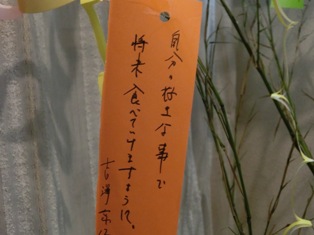 自分の好きな事で
将来食べていけますように。